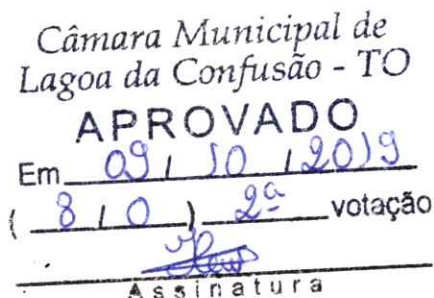 Câmara Municipal de
Lagoa da Confusão - TO
APROVADO
Em 09 / 10 / 2019
( 8 / 0 ) 2ª votação
Assinatura